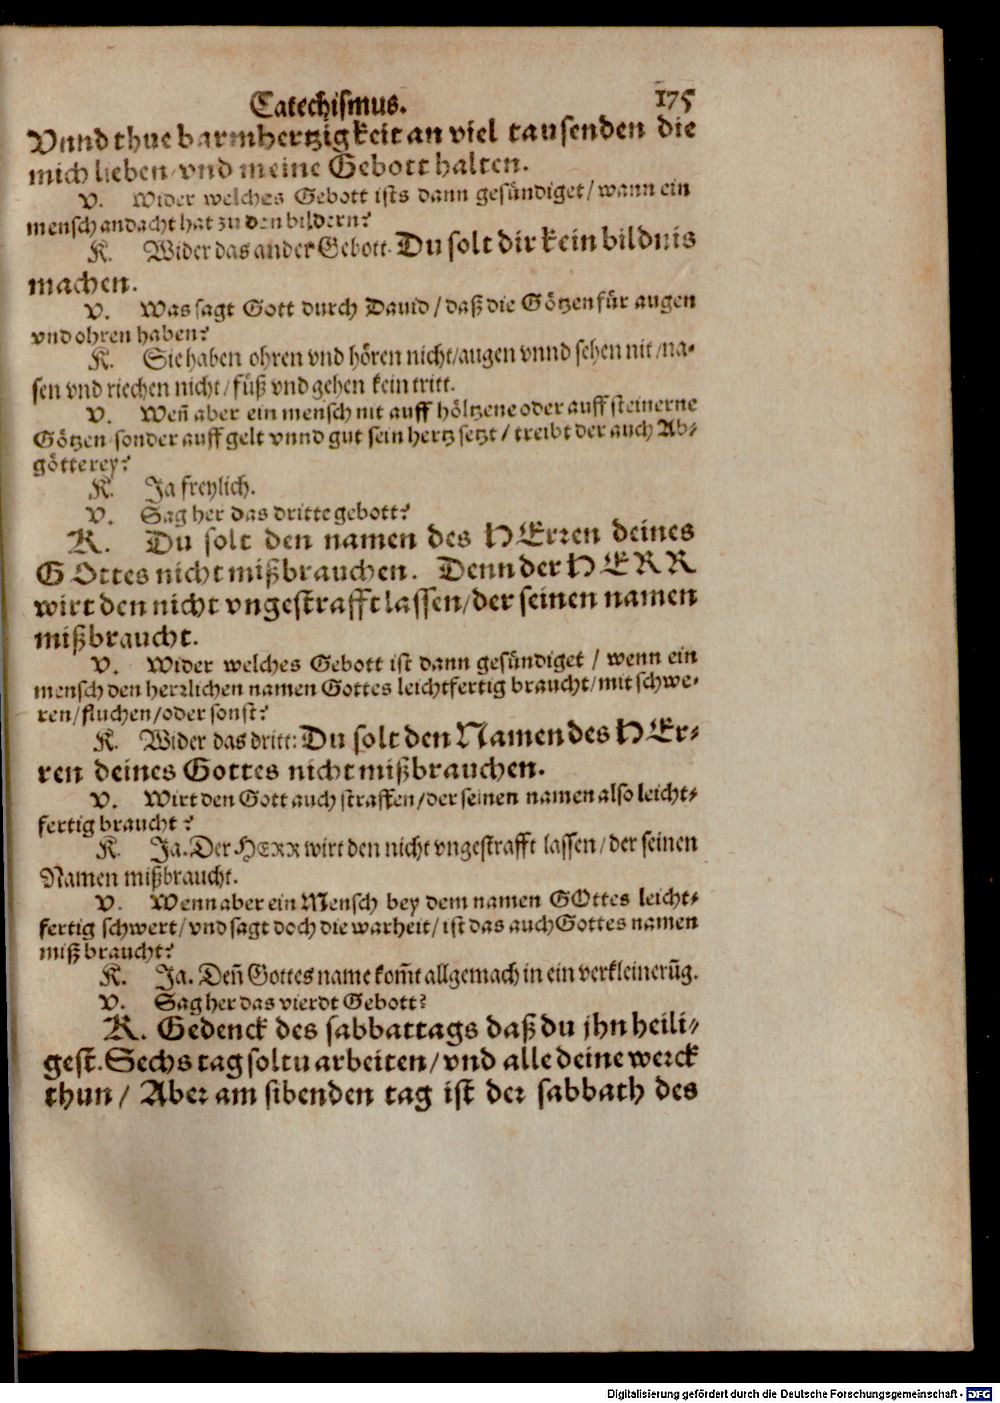 Catechismus. 175
Vnnd thue barmhertzigkeit an viel tausenden die
mich lieben vnd meine Gebott halten.
V. Wider welches Gebott ists dann gesündiget/ wann ein
mensch andacht hat zu den bildern?
K. Wider das ander Gebott. Du solt dir kein bildnis
machen.
V. Was sagt Gott durch Dauid/ daß die Götzen für augen
vnd ohren haben?
K. Sie haben ohren vnd hören nicht/ augen vnnd sehen nit/ na-
sen vnd riechen nicht/ füß vnd gehen kein tritt.
V. Wen̄ aber ein mensch nit auff höltzene oder auff steinerne
Götzen sonder auff gelt vnnd gut sein hertz setzt/ treibt der auch Ab-
götterey?
K. Ja freylich.
V. Sag her das dritte gebott?
K. Du solt den namen des HErren deines
GOttes nicht mißbrauchen. Denn der HERR
wirt den nicht vngestrafft lassen/ der seinen namen
mißbraucht.
V. Wider welches Gebott ist dann gesündiget/ wenn ein
mensch den herrlichen namen Gottes leichtfertig braucht/ mit schwe-
ren/ fluchen/ oder sonst?
K. Wider das dritt: Du solt den Namen des HEr-
ren deines Gottes nicht mißbrauchen.
V. Wirt den Gott auch straffen/ der seinen namen also leicht-
fertig braucht?
K. Ja. Der HERR wirt den nicht vngestrafft lassen/ der seinen
Namen mißbraucht.
V. Wenn aber ein Mensch bey dem namen GOttes leicht-
fertig schwert/ vnd sagt doch die warheit/ ist das auch Gottes namen
mißbraucht?
K. Ja. Den̄ Gottes name kom̄t allgemach in ein verkleinerūg.
V. Sag her das vierdt Gebott?
K. Gedenck des sabbattags daß du jhn heili-
gest. Sechs tag soltu arbeiten/ vnd alle deine werck
thun/ Aber am sibenden tag ist der sabbath des
Digitalisierung gefördert durch die Deutsche Forschungsgemeinschaft - DFG